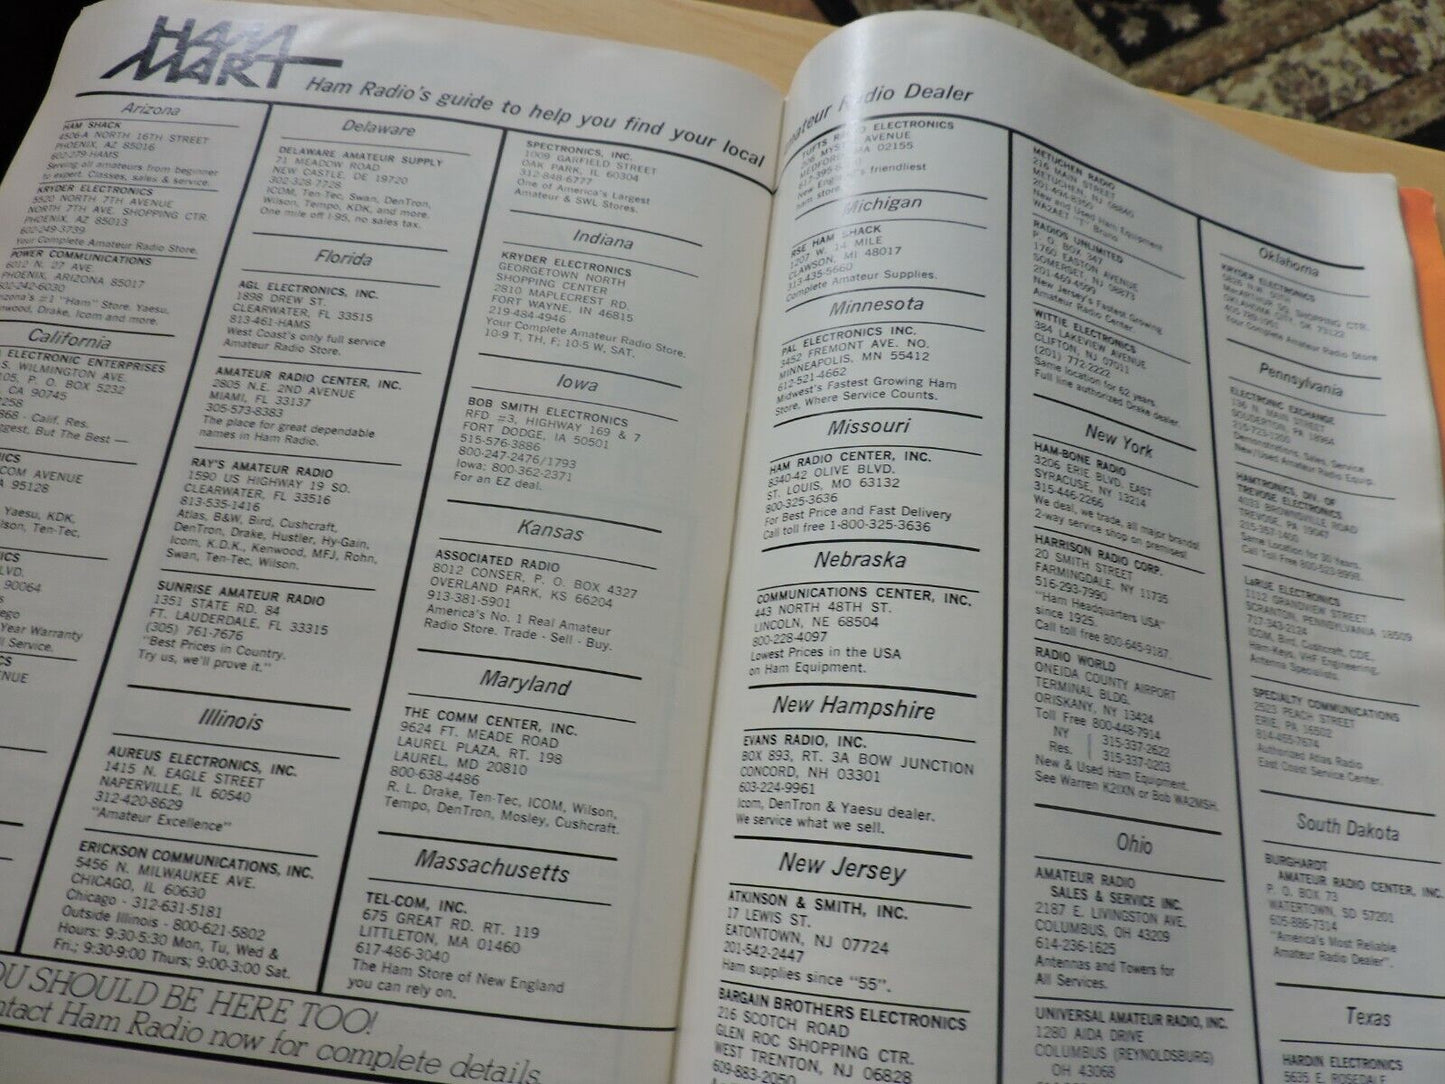 HAM
MART
Ham Radio's guide to help you find your local
Amateur Radio Dealer
Arizona
HAM SHACK
4506-A NORTH 16TH STREET
PHOENIX, AZ 85016
602-279-HAMS
Serving all amateurs from beginner
to expert. Classes, sales & service.
KRYDER ELECTRONICS
5520 NORTH 7TH AVENUE
NORTH 7TH AVE. SHOPPING CTR.
PHOENIX, AZ 85013
602-249-3739
Your Complete Amateur Radio Store.
POWER COMMUNICATIONS
6012 N. 27 AVE.
PHOENIX, ARIZONA 85017
602-242-6030
Arizona's #1 "Ham" Store. Yaesu,
Kenwood, Drake, Icom and more.
California
ELECTRONIC ENTERPRISES
S. WILMINGTON AVE.
105, P. O. BOX 5232
CA 90745
2258
868 - Calif. Res.
Biggest, But The Best —
ICS
COM AVENUE
95128
Yaesu, KDK,
Ten-Tec,
ICS
LVD.
90064
Year Warranty
Service.
ICS
NUE
Delaware
DELAWARE AMATEUR SUPPLY
71 MEADOW ROAD
NEW CASTLE, DE 19720
302-328-7728
ICOM, Ten-Tec, Swan, DenTron,
Wilson, Tempo, KDK, and more.
One mile off I-95, no sales tax.
Florida
AGL ELECTRONICS, INC.
1898 DREW ST.
CLEARWATER, FL 33515
813-461-HAMS
West Coast's only full service
Amateur Radio Store.
AMATEUR RADIO CENTER, INC.
2805 N.E. 2ND AVENUE
MIAMI, FL 33137
305-573-8383
The place for great dependable
names in Ham Radio.
RAY'S AMATEUR RADIO
1590 US HIGHWAY 19 SO.
CLEARWATER, FL 33516
813-535-1416
Atlas, B&W, Bird, Cushcraft,
DenTron, Drake, Hustler, Hy-Gain,
Icom, K.D.K., Kenwood, MFJ, Rohn,
Swan, Ten-Tec, Wilson.
SUNRISE AMATEUR RADIO
1351 STATE RD. 84
FT. LAUDERDALE, FL 33315
(305) 761-7676
"Best Prices in Country.
Try us, we'll prove it."
Illinois
AUREUS ELECTRONICS, INC.
1415 N. EAGLE STREET
NAPERVILLE, IL 60540
312-420-8629
"Amateur Excellence"
ERICKSON COMMUNICATIONS, INC.
5456 N. MILWAUKEE AVE.
CHICAGO, IL 60630
Chicago - 312-631-5181
Outside Illinois - 800-621-5802
Hours: 9:30-5:30 Mon, Tu, Wed &
Fri.; 9:30-9:00 Thurs; 9:00-3:00 Sat.
SPECTRONICS, INC.
1009 GARFIELD STREET
OAK PARK, IL 60304
312-848-6777
One of America's Largest
Amateur & SWL Stores.
Indiana
KRYDER ELECTRONICS
GEORGETOWN NORTH
SHOPPING CENTER
2810 MAPLECREST RD.
FORT WAYNE, IN 46815
219-484-4946
Your Complete Amateur Radio Store.
10-9 T, TH, F; 10-5 W, SAT.
Iowa
BOB SMITH ELECTRONICS
RFD #3, HIGHWAY 169 & 7
FORT DODGE, IA 50501
515-576-3886
800-247-2476/1793
Iowa: 800-362-2371
For an EZ deal.
Kansas
ASSOCIATED RADIO
8012 CONSER, P. O. BOX 4327
OVERLAND PARK, KS 66204
913-381-5901
America's No. 1 Real Amateur
Radio Store. Trade - Sell - Buy.
Maryland
THE COMM CENTER, INC.
9624 FT. MEADE ROAD
LAUREL PLAZA, RT. 198
LAUREL, MD 20810
800-638-4486
R. L. Drake, Ten-Tec, ICOM, Wilson,
Tempo, DenTron, Mosley, Cushcraft.
Massachusetts
TEL-COM, INC.
675 GREAT RD. RT. 119
LITTLETON, MA 01460
617-486-3040
The Ham Store of New England
you can rely on.
YOU SHOULD BE HERE TOO!
Contact Ham Radio now for complete details.
TUFTS RADIO ELECTRONICS
206 MYSTIC AVENUE
MEDFORD, MA 02155
New England's friendliest
ham store.
Michigan
RSE HAM SHACK
1207 W. 14 MILE
CLAWSON, MI 48017
313-435-5660
Complete Amateur Supplies.
Minnesota
PAL ELECTRONICS INC.
3452 FREMONT AVE. NO.
MINNEAPOLIS, MN 55412
612-521-4662
Midwest's Fastest Growing Ham
Store, Where Service Counts.
Missouri
HAM RADIO CENTER, INC.
8340-42 OLIVE BLVD.
ST. LOUIS, MO 63132
800-325-3636
For Best Price and Fast Delivery
Call toll free 1-800-325-3636
Nebraska
COMMUNICATIONS CENTER, INC.
443 NORTH 48TH ST.
LINCOLN, NE 68504
800-228-4097
Lowest Prices in the USA
on Ham Equipment.
New Hampshire
EVANS RADIO, INC.
BOX 893, RT. 3A BOW JUNCTION
CONCORD, NH 03301
603-224-9961
Icom, DenTron & Yaesu dealer.
We service what we sell.
New Jersey
ATKINSON & SMITH, INC.
17 LEWIS ST.
EATONTOWN, NJ 07724
201-542-2447
Ham supplies since "55".
BARGAIN BROTHERS ELECTRONICS
216 SCOTCH ROAD
GLEN ROC SHOPPING CTR.
WEST TRENTON, NJ 06828
609-883-2050
METUCHEN RADIO
216 MAIN STREET
METUCHEN, NJ 08840
201-494-8350
New and Used Ham Equipment
WA2AET "T" Bruno
RADIOS UNLIMITED
P. O. BOX 347
1760 EASTON AVENUE
SOMERSET, NJ 08873
201-469-4599
New Jersey's Fastest Growing
Amateur Radio Center.
WITTIE ELECTRONICS
384 LAKEVIEW AVENUE
CLIFTON, NJ 07011
(201) 772-2222
Same location for 62 years.
Full line authorized Drake dealer.
New York
HAM-BONE RADIO
3206 ERIE BLVD. EAST
SYRACUSE, NY 13214
315-446-2266
We deal, we trade, all major brands!
2-way service shop on premises!
HARRISON RADIO CORP.
20 SMITH STREET
FARMINGDALE, NY 11735
516-293-7990
"Ham Headquarters USA"
since 1925.
Call toll free 800-645-9187.
RADIO WORLD
ONEIDA COUNTY AIRPORT
TERMINAL BLDG.
ORISKANY, NY 13424
Toll Free 800-448-7914
NY 315-337-2622
Res. 315-337-0203
New & Used Ham Equipment.
See Warren K2IXN or Bob WA2MSH.
Ohio
AMATEUR RADIO
SALES & SERVICE INC.
2187 E. LIVINGSTON AVE.
COLUMBUS, OH 43209
614-236-1625
Antennas and Towers for
All Services.
UNIVERSAL AMATEUR RADIO, INC.
1280 AIDA DRIVE
COLUMBUS (REYNOLDSBURG)
OH 43068
Oklahoma
KRYDER ELECTRONICS
5826 N.W. 50TH
MacARTHUR SQ. SHOPPING CTR.
OKLAHOMA CITY, OK 73122
405-789-1951
Your Complete Amateur Radio Store
Pennsylvania
ELECTRONIC EXCHANGE
136 N. MAIN STREET
SOUDERTON, PA 18964
215-723-1200
Demonstrations, Sales, Service
New/Used Amateur Radio Equip.
HAMTRONICS, DIV. OF
TREVOSE ELECTRONICS
4033 BROWNSVILLE ROAD
TREVOSE, PA 19047
215-357-1400
Same Location for 30 Years.
Call Toll Free 800-523-8998.
LaRUE ELECTRONICS
1112 GRANDVIEW STREET
SCRANTON, PENNSYLVANIA 18509
717-343-2124
ICOM, Bird, Cushcraft, CDE,
Ham-Keys, VHF Engineering,
Antenna Specialists.
SPECIALTY COMMUNICATIONS
2523 PEACH STREET
ERIE, PA 16502
814-455-7674
Authorized Atlas Radio
East Coast Service Center.
South Dakota
BURGHARDT
AMATEUR RADIO CENTER, INC.
P. O. BOX 73
WATERTOWN, SD 57201
605-886-7314
"America's Most Reliable
Amateur Radio Dealer".
Texas
HARDIN ELECTRONICS
5635 E. ROSEDALE